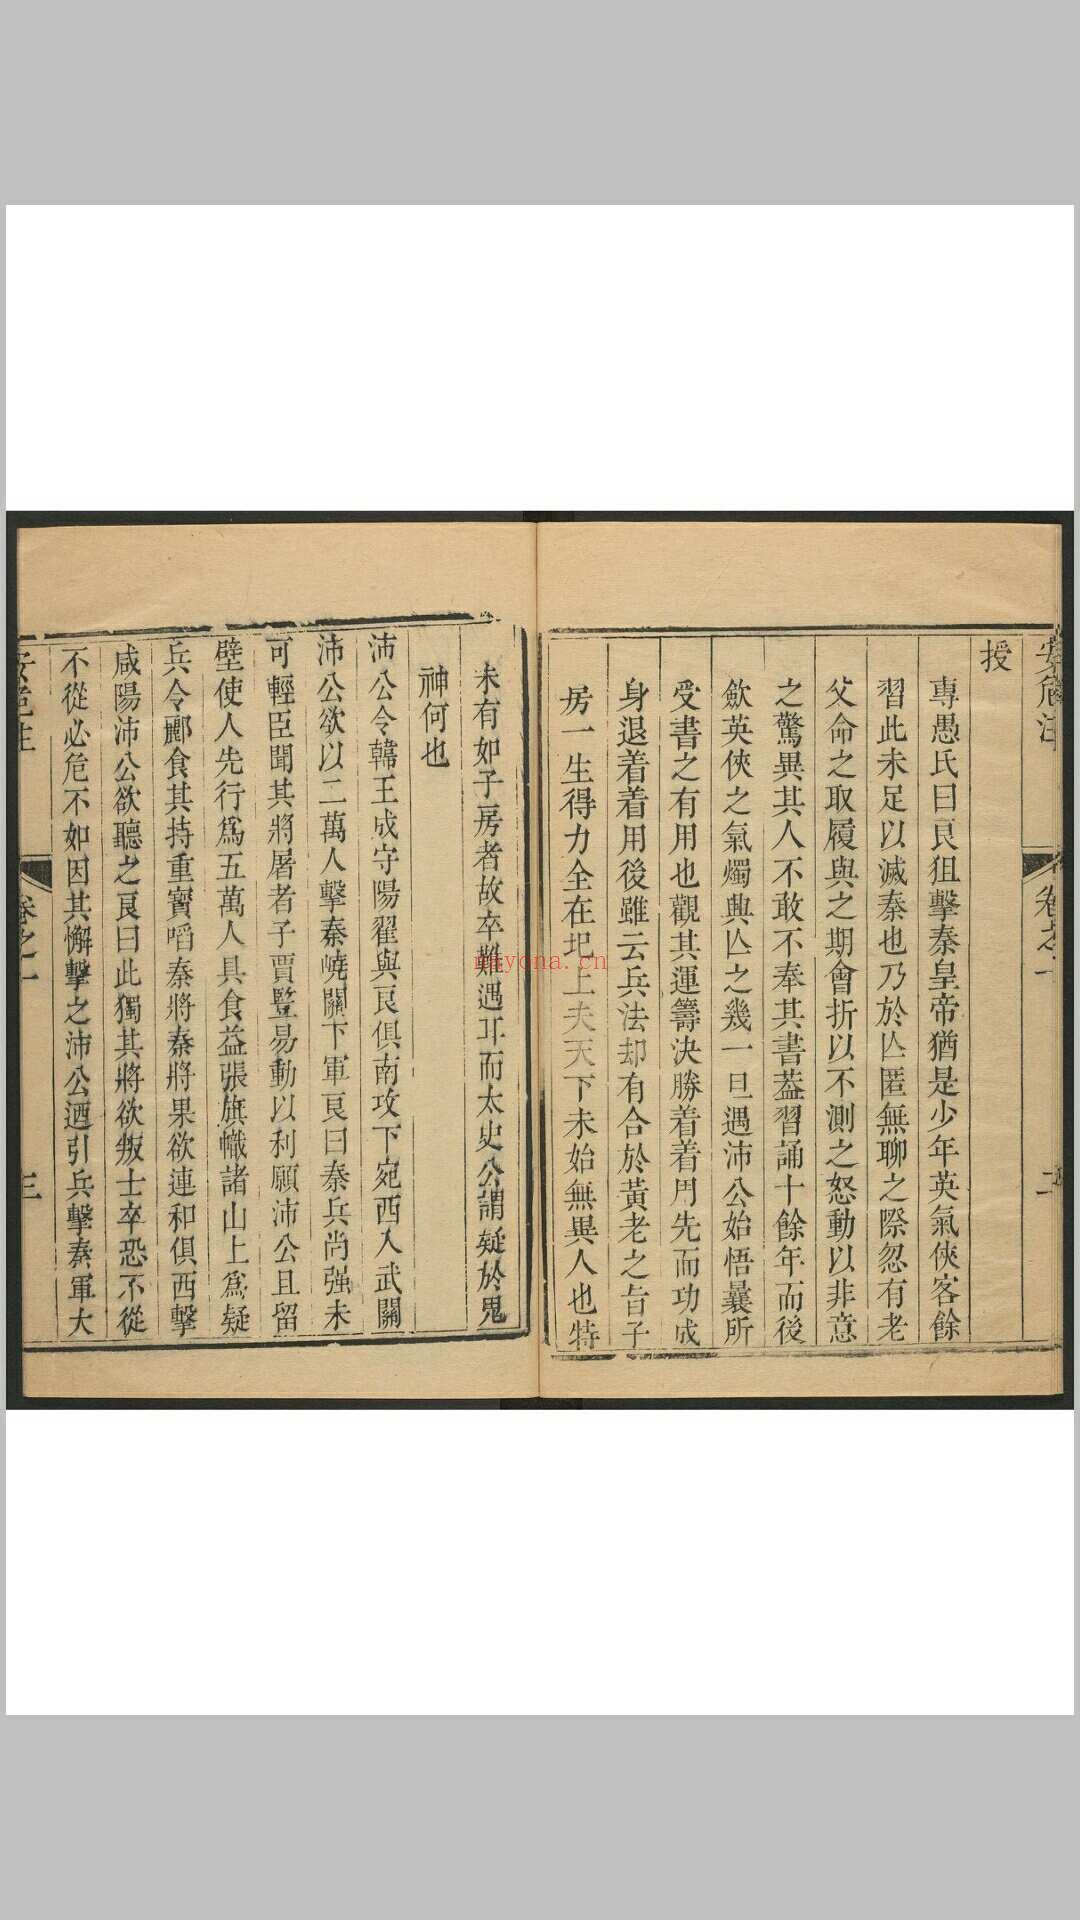 安危注
卷之一
二
授
專愚氏曰良狙擊秦皇帝猶是少年英氣俠客餘
習此未足以滅秦也乃於亾匿無聊之際忽有老
父命之取履與之期會折以不測之怒動以非意
之驚異其人不敢不奉其書葢習誦十餘年而後
歛英俠之氣燭興亾之幾一旦遇沛公始悟曩所
受書之有用也觀其運籌决勝着着用先而功成
身退着着用後雖云兵法却有合於黃老之旨子
房一生得力全在圯上夫天下未始無異人也特
未有如子房者故卒難遇耳而太史公謂疑於鬼
神何也
沛公令韓王成守陽翟與良俱南攻下宛西入武關
沛公欲以二萬人擊秦嶢關下軍良曰秦兵尚强未
可輕臣聞其將屠者子賈豎易動以利願沛公且留
壁使人先行爲五萬人具食益張旗幟諸山上爲疑
兵令酈食其持重寶啗秦將秦將果欲連和俱西擊
咸陽沛公欲聽之良曰此獨其將欲叛士卒恐不從
不從必危不如因其懈擊之沛公迺引兵擊秦軍大
安危注
卷之一
三
nayona.cn